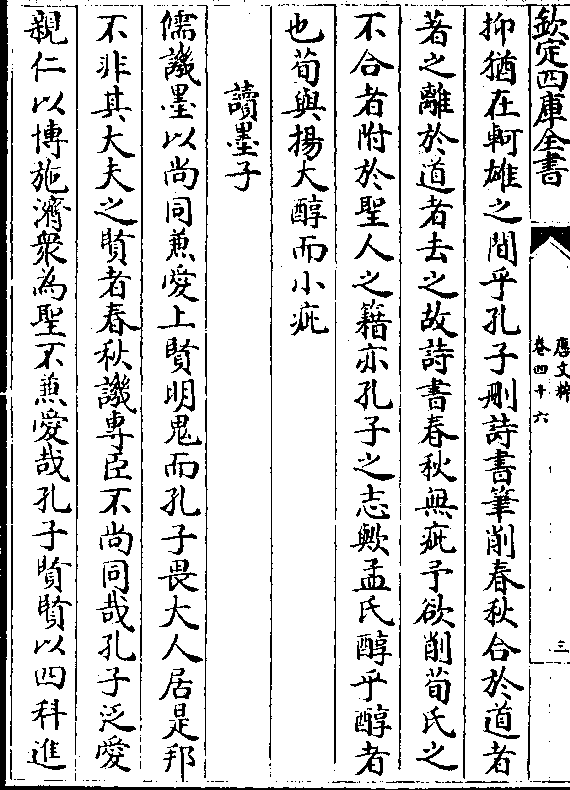 欽定四庫全書
唐文粹
卷四十六
三
抑猶在軻雄之間乎孔子刪詩書筆削春秋合於道者
著之離於道者去之故詩書春秋無疵予欲削荀氏之
不合者附於聖人之籍亦孔子之志歟孟氏醇乎醇者
也荀與揚大醇而小疵
讀墨子
儒譏墨以尚同兼愛上賢明鬼而孔子畏大人居是邦
不非其大夫之賢者春秋譏專臣不尚同哉孔子泛愛
親仁以博施濟衆為聖不兼愛哉孔子賢賢以四科進